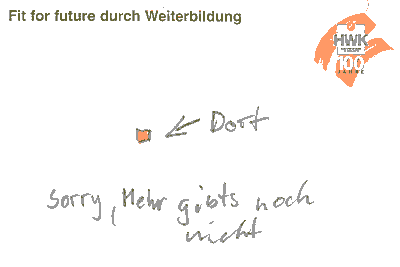 Fit for future durch Weiterbildung
HWK
100
JAHRE
Dort
Sorry, Mehr gibts noch
nicht